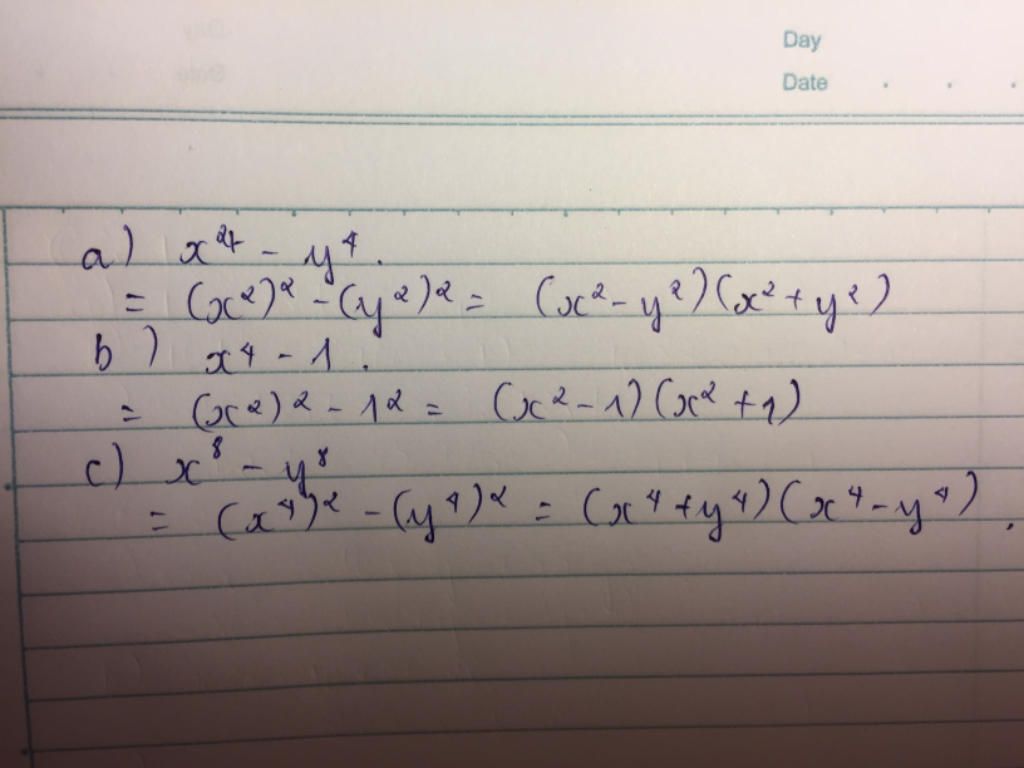 Day
Date . . .
a) x⁴ - y⁴.
= (x²)² - (y²)² = (x² - y²)(x² + y²)
b) x⁴ - 1.
= (x²)² - 1² = (x² - 1)(x² + 1)
c) x⁸ - y⁸
= (x⁴)² - (y⁴)² = (x⁴ + y⁴)(x⁴ - y⁴).